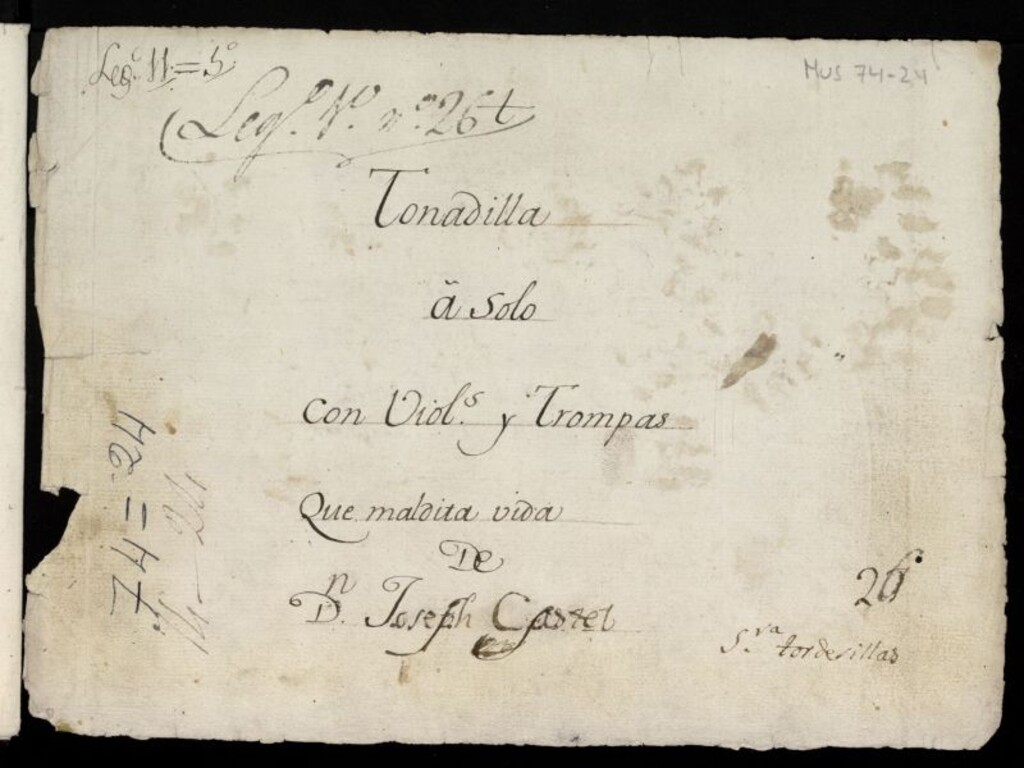 Leg.º 11=5º
Mus 74-24
Leg.º 1º. nº 26
Tonadilla
a Solo
con Viol.s y Trompas
Que maldita vida
De
D.n Joseph Castel
26
S.ra tordesillas
74=24
74-24